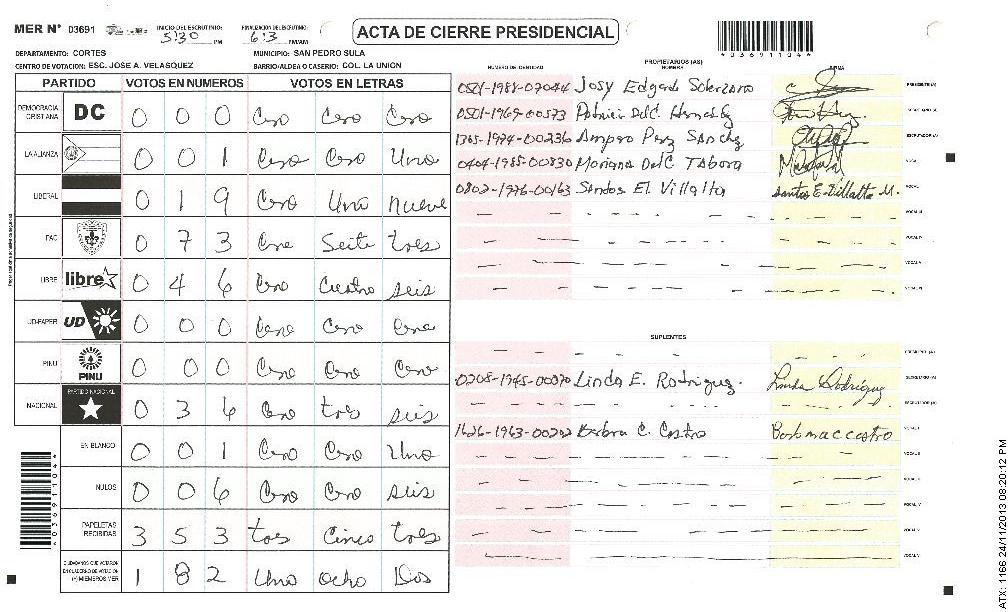 MER N° 03691 INICIO DEL ESCRUTINIO: 5:30 PM FINALIZACION DEL ESCRUTINIO: 6:3 PM/AM
ACTA DE CIERRE PRESIDENCIAL
*036911044*
DEPARTAMENTO: CORTES MUNICIPIO: SAN PEDRO SULA
CENTRO DE VOTACION: ESC. JOSE A. VELASQUEZ BARRIO/ALDEA O CASERIO: COL. LA UNION
PARTIDO VOTOS EN NUMEROS VOTOS EN LETRAS
DEMOCRACIA CRISTIANA DC 0 0 0 Cero Cero Cero
LA ALIANZA 0 0 1 Cero Cero Uno
LIBERAL 0 1 9 Cero Uno nueve
PAC 0 7 3 Cero Seite tres
LIBRE libre 0 4 6 Cero Cuatro seis
UD-FAPER UD 0 0 0 Cero Cero Cero
PINU PINU 0 0 0 Cero Cero Cero
NACIONAL PARTIDO NACIONAL 0 3 6 Cero tres seis
EN BLANCO 0 0 1 Cero Cero Uno
NULOS 0 0 6 Cero Cero seis
PAPELETAS RECIBIDAS 3 5 3 tres Cinco tres
CIUDADANOS QUE VOTARON EN CUADERNO DE VOTACION (+) MIEMBROS MER 1 8 2 Uno ocho Dos
NUMERO DE IDENTIDAD PROPIETARIOS (AS) NOMBRE FIRMA
0501-1988-07044 Josy Edgardo Solorzano PRESIDENTE (A)
0501-1969-00573 SECRETARIO (A)
Amparo Perez Sanchez ESCRUTADOR (A)
0404-1985-00830 Mariana Del C Tabora VOCAL I
0802-1976-00163 Santos E. Villalta Santos E. Villalta M. VOCAL II
VOCAL III
VOCAL IV
VOCAL V
VOCAL VI
SUPLENTES
PRESIDENTE (A)
0208-1945-00070 Linda E. Rodriguez. Linda Rodriguez SECRETARIO (A)
ESCRUTADOR (A)
1626-1963-00202 Barbara C. Castro VOCAL I
VOCAL II
VOCAL III
VOCAL IV
VOCAL V
VOCAL VI
*036911044*
ATX: 1166 24/11/2013 08:20:12 PM